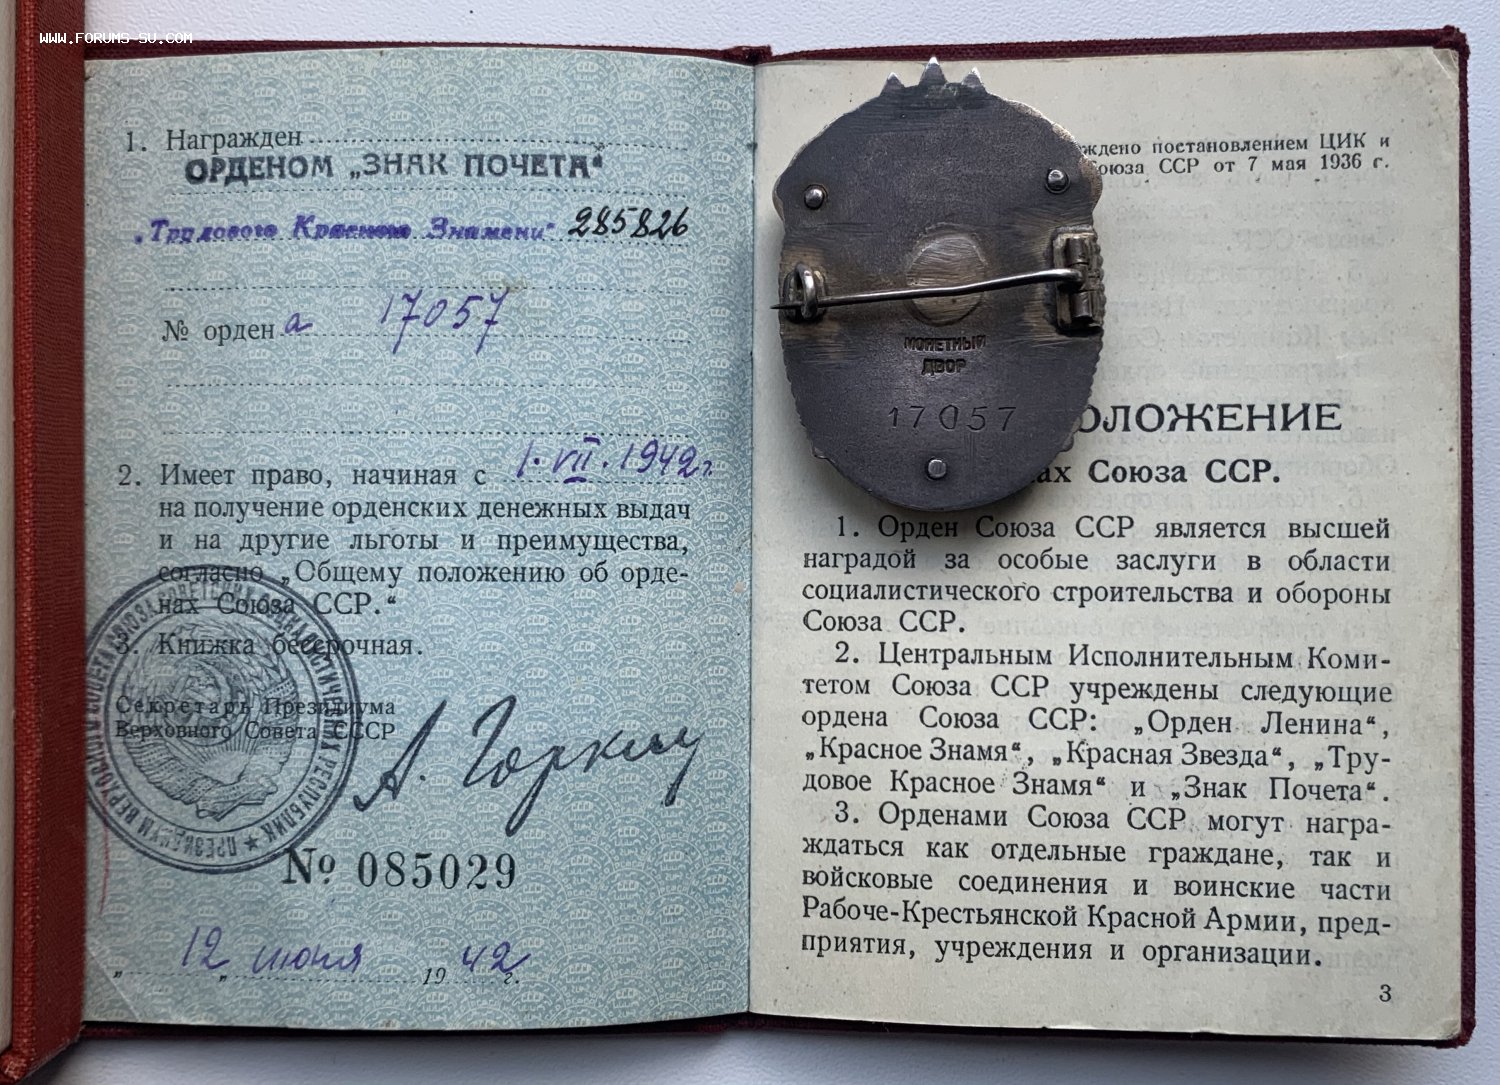 WWW.FORUMS-SU.COM
1. Награжден
ОРДЕНОМ „ЗНАК ПОЧЕТА“
„Трудового Красного Знамени“ 285826
№ орден а 17057
2. Имеет право, начиная с 1.VII.1942г.
на получение орденских денежных выдач
и на другие льготы и преимущества,
согласно „Общему положению об орде-
нах Союза ССР.“
3. Книжка бессрочная.
Секретарь Президиума
Верховного Совета СССР
А. Горкин
ПРЕЗИДИУМ ВЕРХОВНОГО СОВЕТА СОЮЗА СОВЕТСКИХ СОЦИАЛИСТИЧЕСКИХ РЕСПУБЛИК ★
№ 085029
„ 12 „ июня 1942 г.
ждено постановлением ЦИК и
Союза ССР от 7 мая 1936 г.
МОНЕТНЫЙ
ДВОР
17057
ОЛОЖЕНИЕ
ах Союза ССР.
1. Орден Союза ССР является высшей
наградой за особые заслуги в области
социалистического строительства и обороны
Союза ССР.
2. Центральным Исполнительным Коми-
тетом Союза ССР учреждены следующие
ордена Союза ССР: „Орден Ленина“,
„Красное Знамя“, „Красная Звезда“, „Тру-
довое Красное Знамя“ и „Знак Почета“.
3. Орденами Союза ССР могут награ-
ждаться как отдельные граждане, так и
войсковые соединения и воинские части
Рабоче-Крестьянской Красной Армии, пред-
приятия, учреждения и организации.
3